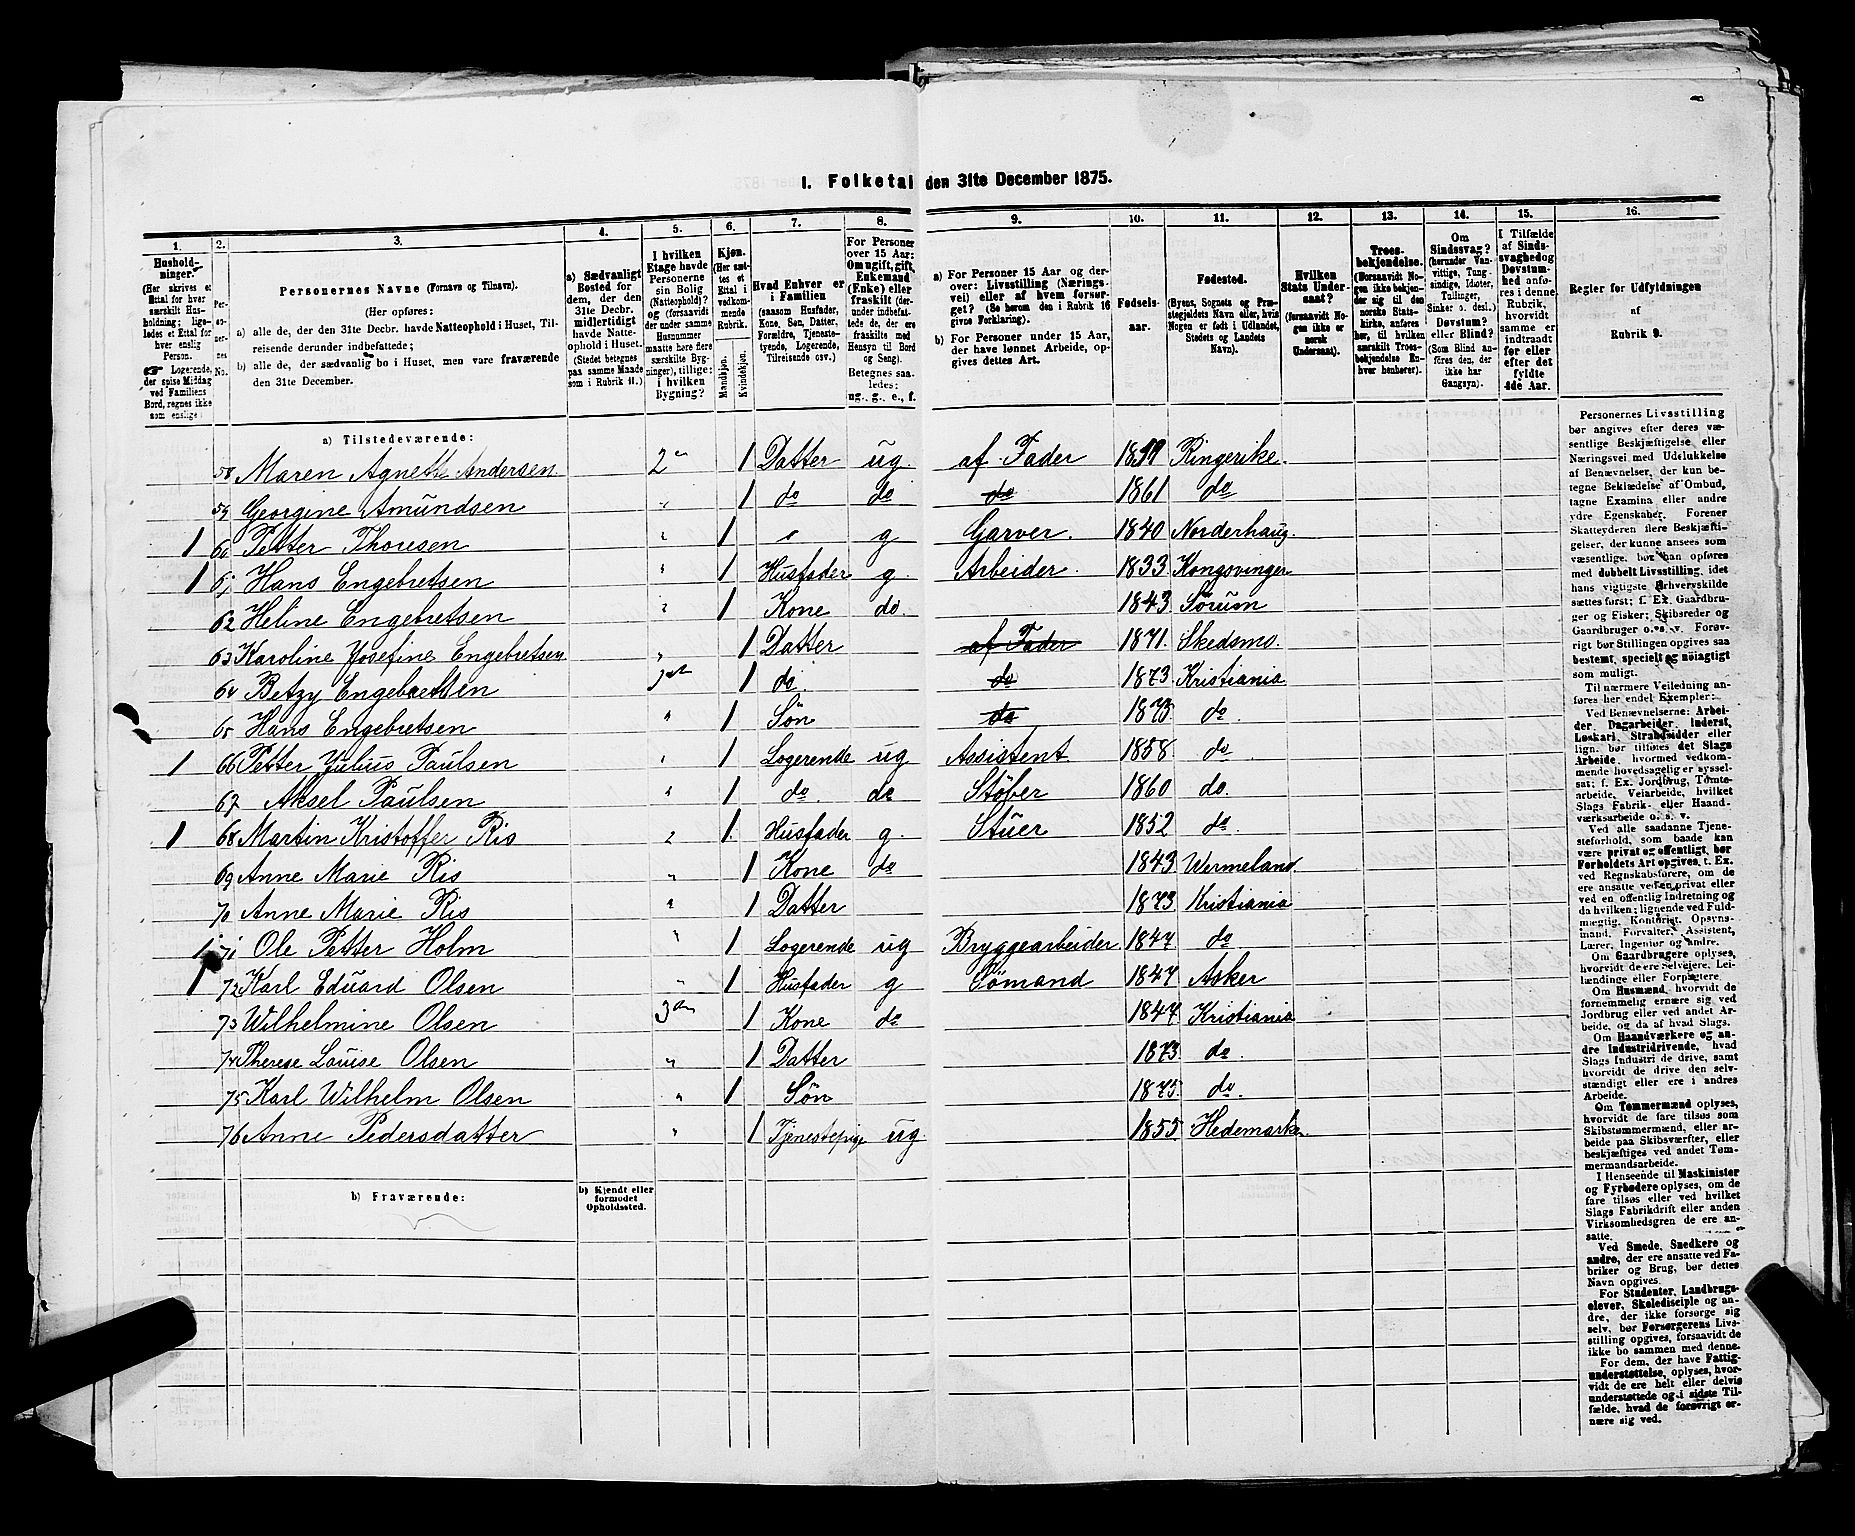 I. Folketal den 31te December 1875.
1. 2. 3. 4. 5. 6. 7. 8. 9. 10. 11. 12. 13. 14. 15. 16.
Husholdninger.
(Her skrives et Ettal for hver særskilt Husholdning; ligeledes et Ettal for hver enslig Person.
☞ Logerende, der spise Middag ved Familiens Bord, regnes ikke som enslige)
Personernes No.
Personernes Navne (Fornavn og Tilnavn).
(Her opføres:
a) alle de, der den 31te Decbr. havde Natteophold i Huset, Tilreisende derunder indbefattede;
b) alle de, der sædvanlig bo i Huset, men vare fraværende den 31te December.
a) Sædvanligt Bosted for dem, der den 31te Decbr. midlertidigt havde Natteophold i Huset. (Stedet betegnes paa samme Maade som i Rubrik 11.)
I hvilken Etage havde Personerne sin Bolig (Natteophold)? og (forsaavidt der under samme Husnummer maatte høre flere særskilte Bygninger), tillige: i hvilken Bygning?
Kjøn. (Her sættes et Ettal i vedkommende Rubrik.
Mandkjøn. Kvindekjøn.
Hvad Enhver er i Familien (saasom Husfader, Kone, Søn, Datter, Forældre, Tjenestetyende, Logerende, Tilreisende osv.)
For Personer over 15 Aar: Om ugift, gift, Enkemand (Enke) eller fraskilt (derunder indbefattede de, der ere fraskilte med Hensyn til Bord og Seng). Betegnes saaledes: ug., g., e., f.
a) For Personer 15 Aar og derover: Livsstilling (Næringsvei) eller af hvem forsørget? (Se herom den i Rubrik 16 givne Forklaring).
b) For Personer under 15 Aar, der have lønnet Arbeide, opgives dettes Art.
Fødselsaar.
Fødested.
(Byens, Sognets og Præstegjeldets Navn eller, hvis Nogen er født i Udlandet, Stedets og Landets Navn).
Hvilken Stats Undersaat? (forsaavidt Nogen ikke er norsk Undersaat).
Troesbekjendelse.
(Forsaavidt Nogen ikke bekjender sig til den norske Statskirke, anføres her, til hvilken særskilt Troesbekjendelse Enhver henhører).
Om Sindssvag? (herunder Vanvittige, Tungsindige, Idioter, Tullinger, Sinker o. desl.) Døvstum? eller Blind? (Som Blind anføres den, der ikke har Gangsyn).
I Tilfælde af Sindssvaghed og Døvstumhed anføres i denne Rubrik, hvorvidt samme er indtraadt før eller efter det fyldte 4de Aar.
Regler for Udfyldningen af Rubrik 9.
a) Tilstedeværende:
58 Maren Agnette Andersen 1 Datter ug. af Fader Ringerike.
59 Georgine Amundsen „ 1 do do do 1861 do
1 60 Petter Thoresen „ 1 „ g Garver. 1840 Norderhaug.
1 61 Hans Engebretsen „ 1 Husfader g. Arbeider. 1833 Kongsvinger
62 Heline Engebretsen „ 1 Kone do. 1843 Sørum
63 Karoline Josefine Engebretsen „ 1 Datter af Fader 1871. Skedsmo.
64 Betzy Engebretsen 1 do. do 1873. Kristiania
65 Hans Engebretsen „ 1 Søn do 1875 do.
1 66 Petter Julius Paulsen „ 1 Logerende ug Assistent 1858 do.
67 Aksel Paulsen „ 1 do. do Støber 1860 do.
1 68 Martin Kristoffer Ris „ 1. Husfader g. Stuer 1852 do.
69 Anne Marie Ris „ 1 Kone do 1843 Wermeland.
70 Anne Marie Ris „ 1 Datter 1873 Kristiania
1 71 Ole Petter Holm „ 1 Logerende ug Bryggearbeider. 1847 do.
1 72 Karl Eduard Olsen „ 1 Husfader g Sømand 1847 Asker
73 Wilhelmine Olsen 1 Kone do 1847 Kristiania
74 Therese Louise Olsen „ 1 Datter 1873. do.
75 Karl Wilhelm Olsen „ 1 Søn 1875. do.
76 Anne Pedersdatter „ 1 Tjenestepige ug. 1855 Hedemarken.
b) Fraværende:
b) Kjendt eller formodet Opholdssted.
Personernes Livsstilling
bør angives efter deres væsentlige Beskjæftigelse eller
Næringsvei med Udelukkelse
af Benævnelser, der kun betegne Beklædelse af Ombud,
tagne Examina eller andre
ydre Egenskaber. Forener
Skatteyderen flere Beskjæftigelser, der kunne ansees som
væsentlige, bør han opføres
med dobbelt Livsstilling, idet
hans vigtigste Erhvervskilde
sættes først; f. Ex. Gaardbruger og Fisker; Skibsreder og
Gaardbruger o. s. v. Forøvrigt bør Stillingen opgives saa
bestemt, specielt og nøiagtigt
som muligt.
Til nærmere Veiledning anføres her endel Exempler:
Ved Benævnelserne: Arbeider, Dagarbeider, Inderst,
Løskarl, Strandsidder eller
lign. bør tilføres det Slags
Arbeide, hvormed vedkommende hovedsagelig er sysselsat; f. Ex. Jordbrug, Tømtearbeide, Veiarbeide, hvilket
Slags Fabrik- eller Haandværksarbeide o. s. v.
Ved alle saadanne Tjenesteforhold, som baade kan
være privat og offentligt, bør
Forholdets Art opgives, t. Ex.
ved Regnskabsførere, om de
ere ansatte ved en privat eller
ved en offentlig Indretning og
da hvilken; lignende ved Fuldmægtig, Kontorist, Opsynsmand, Forvalter, Assistent,
Lærer, Ingeniør og andre.
Om Gaardbrugere oplyses,
hvorvidt de ere Selveiere, Leilændinge eller Forpagtere.
Om Husmænd, hvorvidt de
fornemmelig ernære sig ved
Jordbrug eller ved andet Arbeide, og da af hvad Slags.
Om Haandværkere og andre Industridrivende, hvad
Slags Industri de drive, samt
hvorvidt de drive den selvstændigt eller ere i andres
Arbeide.
Om Tømmermænd oplyses,
hvorvidt de fare tilsøs som
Skibstømmermænd, eller arbeide paa Skibsværfter, eller
beskjæftiges ved andet Tømmermandsarbeide.
I Henseende til Maskinister
og Fyrbødere oplyses, om de
fare tilsøs eller ved hvilket
Slags Fabrikdrift eller anden
Virksomhedsgren de ere ansatte.
Ved Smede, Snedkere og
andre, der ere ansatte ved Fabriker og Brug, bør dettes
Navn opgives.
For Studenter, Landbrugselever, Skoledisciple og andre, der ikke forsørge sig
selv, bør Forsørgerens Livsstilling opgives, forsaavidt de
ikke bo sammen med denne.
For dem, der have Fattigunderstøttelse, oplyses, hvorvidt de ere helt eller delvis
understøttede og i sidste Tilfælde, hvad de forøvrigt ernære sig ved.